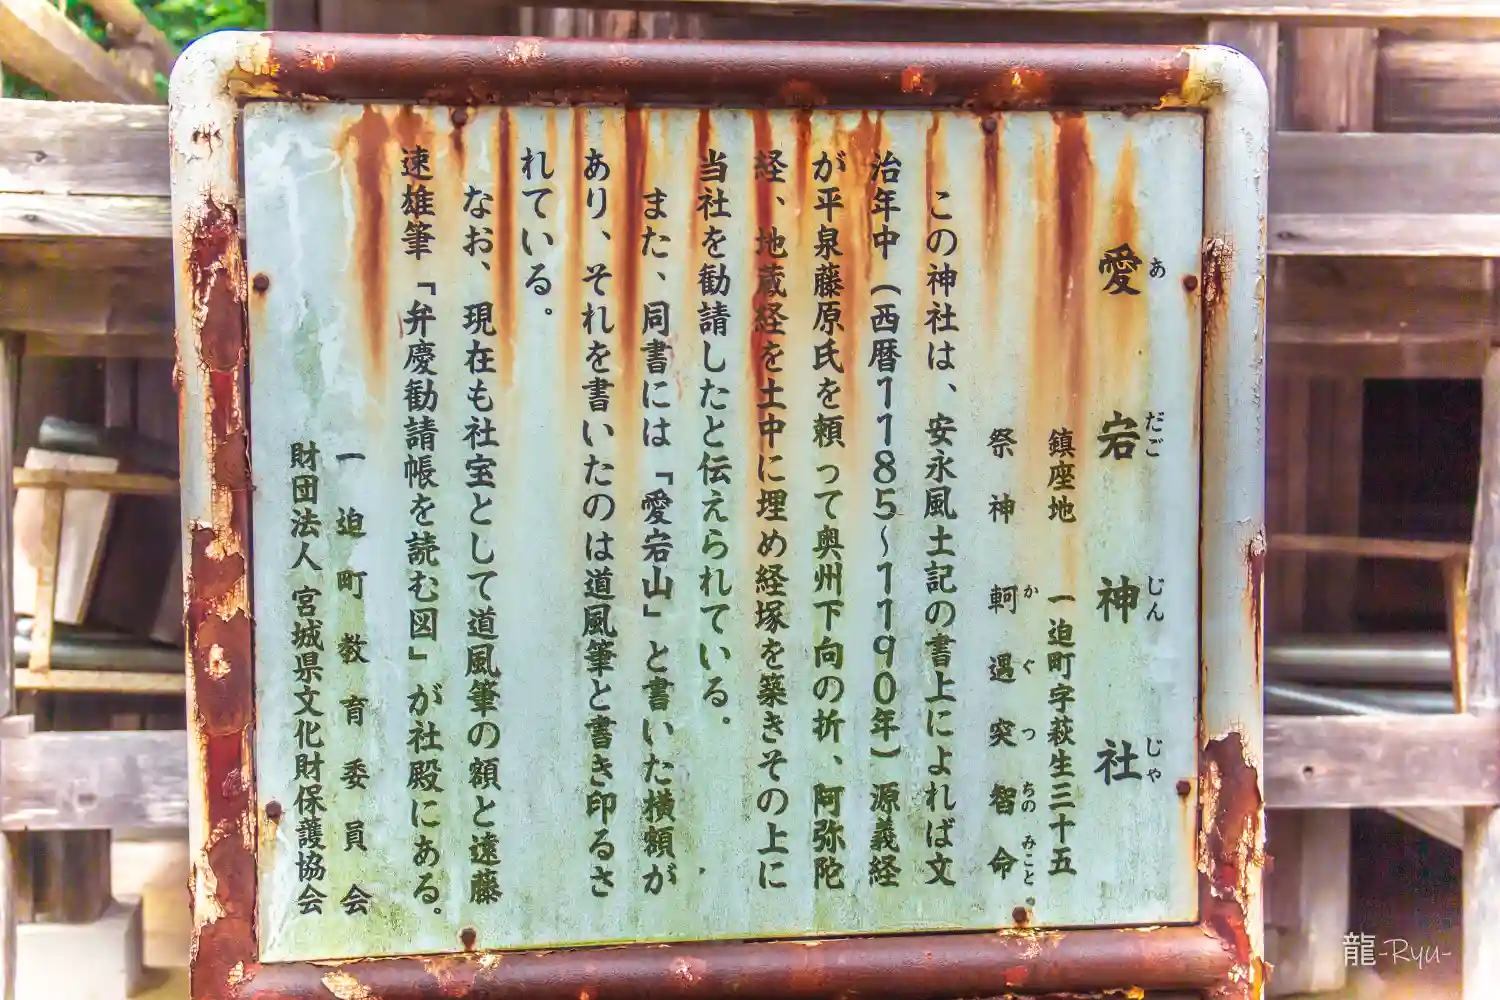 愛宕神社
あ だご じん じゃ
鎮座地 一迫町字萩生三十五
祭神 軻遇突智命
かぐつちのみこと。
この神社は、安永風土記の書上によれば文
治年中(西暦1185~1190年)源義経
が平泉藤原氏を頼って奥州下向の折、阿弥陀
経、地蔵経を土中に埋め経塚を築きその上に
当社を勧請したと伝えられている。
また、同書には「愛宕山」と書いた横額が
あり、それを書いたのは道風筆と書き印るさ
れている。
なお、現在も社宝として道風筆の額と遠藤
速雄筆「弁慶勧請帳を読む図」が社殿にある。
一迫町教育委員会
財団法人 宮城県文化財保護協会
龍-Ryu-